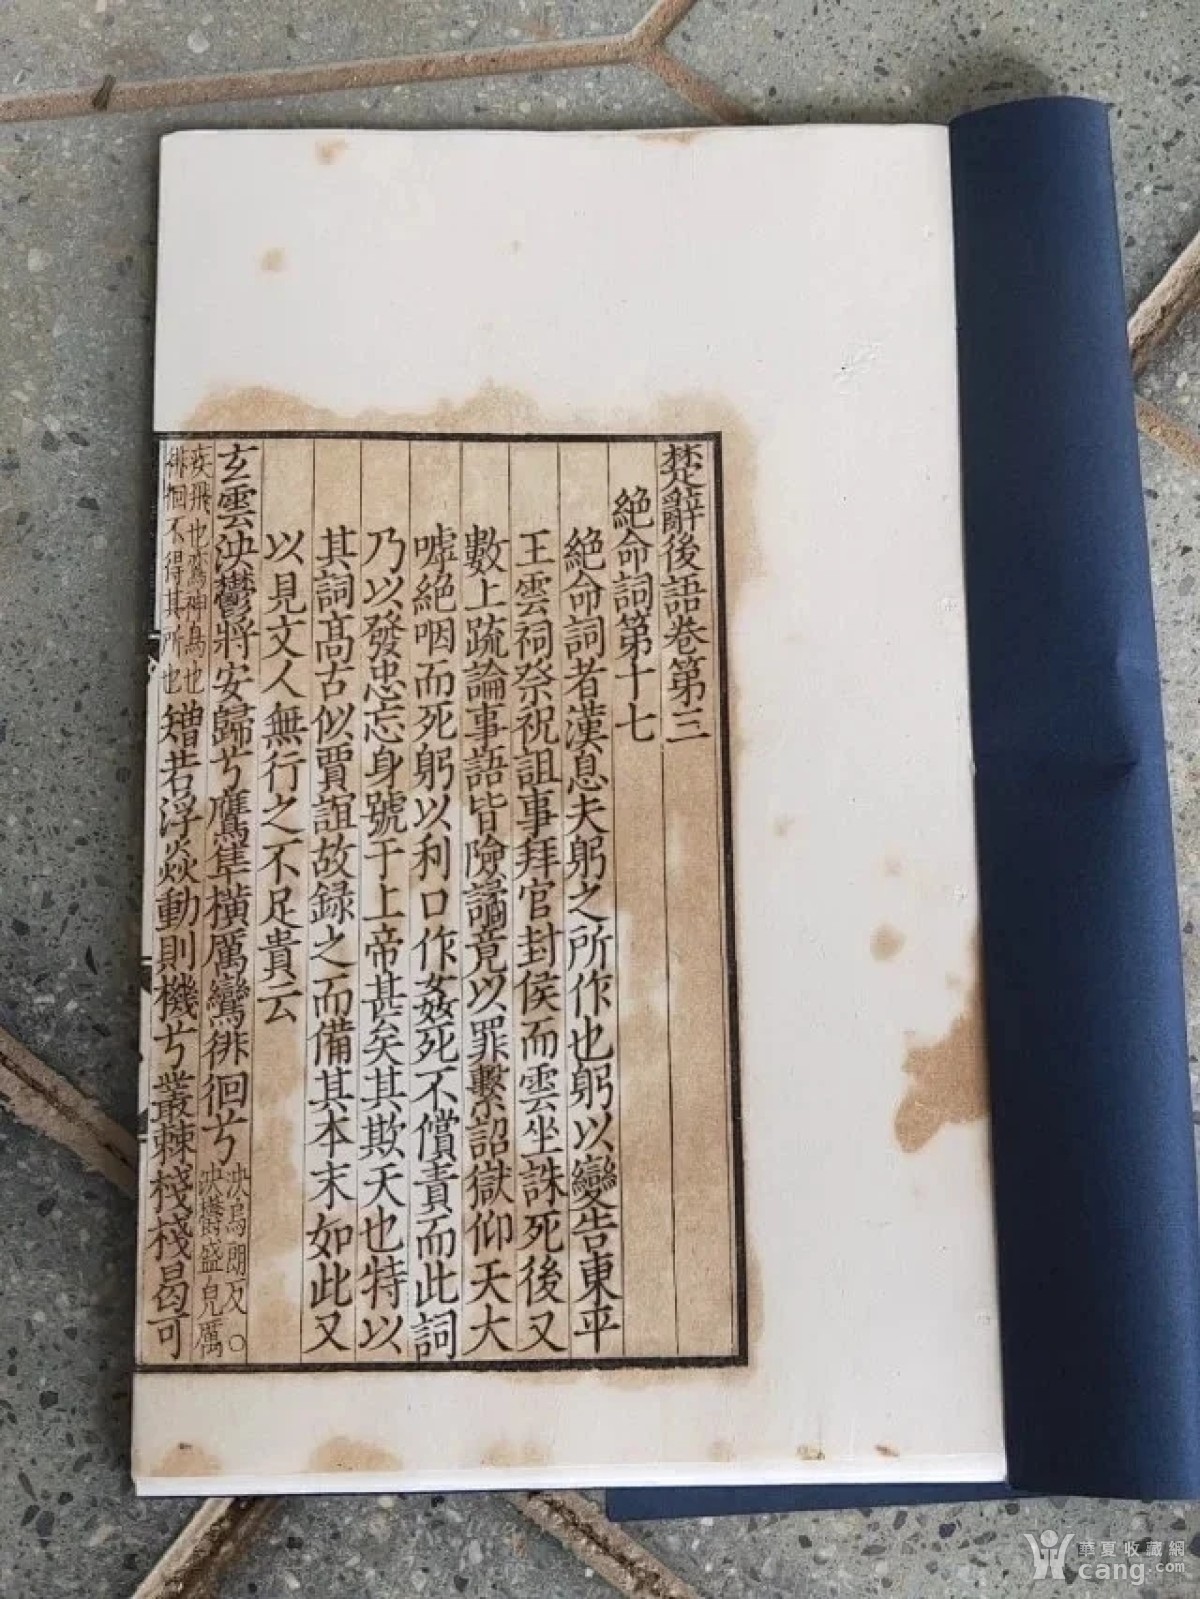 楚辭後語卷第三
絶命詞第十七
絶命詞者漢息夫躬之所作也躬以變告東平
王雲祠祭祝詛事拜官封侯而雲坐誅死後又
數上疏論事語皆險譎竟以罪繫詔獄仰天大
嘑絶咽而死躬以利口作姦死不償責而此詞
乃以發忠忘身號于上帝甚矣其欺天也特以
其詞高古似賈誼故録之而備其本末如此又
以見文人無行之不足貴云
玄雲泱鬱將安歸兮鷹隼橫厲鸞徘徊兮泱烏朗反○
泱鬱盛皃厲
疾飛也鸞神鳥也
徘徊不得其所也矰若浮猋動則機兮叢棘棧棧曷可
華夏收藏網
cang.com